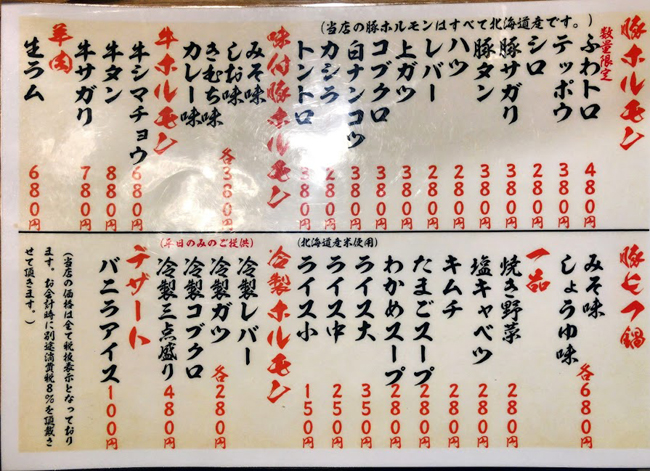 豚ホルモン
(当店の豚ホルモンはすべて北海道産です。)
数量限定
ふわトロ 480円
テッポウ 380円
シロ 280円
豚サガリ 380円
豚タン 280円
ハツ 280円
レバー 280円
上ガツ 380円
コブクロ 380円
白ナンコツ 380円
カシラ 280円
トントロ 380円
味付豚ホルモン
みそ味
しお味
きむち味
カレー味
各380円
牛ホルモン
牛シマチョウ 680円
牛タン 880円
牛サガリ 780円
羊肉
生ラム 680円
豚モツ鍋
みそ味
しょうゆ味
各680円
一品
焼き野菜 280円
塩キャベツ 280円
キムチ 280円
たまごスープ 280円
わかめスープ 280円
(北海道産米使用)
ライス大 350円
ライス中 250円
ライス小 150円
冷製ホルモン
(平日のみのご提供)
冷製レバー
冷製ガツ
冷製コブクロ
各280円
冷製三点盛り 480円
デザート
バニラアイス 100円
(当店の価格は全て税抜表示となっており
ます。お会計時に別途消費税8%を頂戴さ
せて頂きます。)